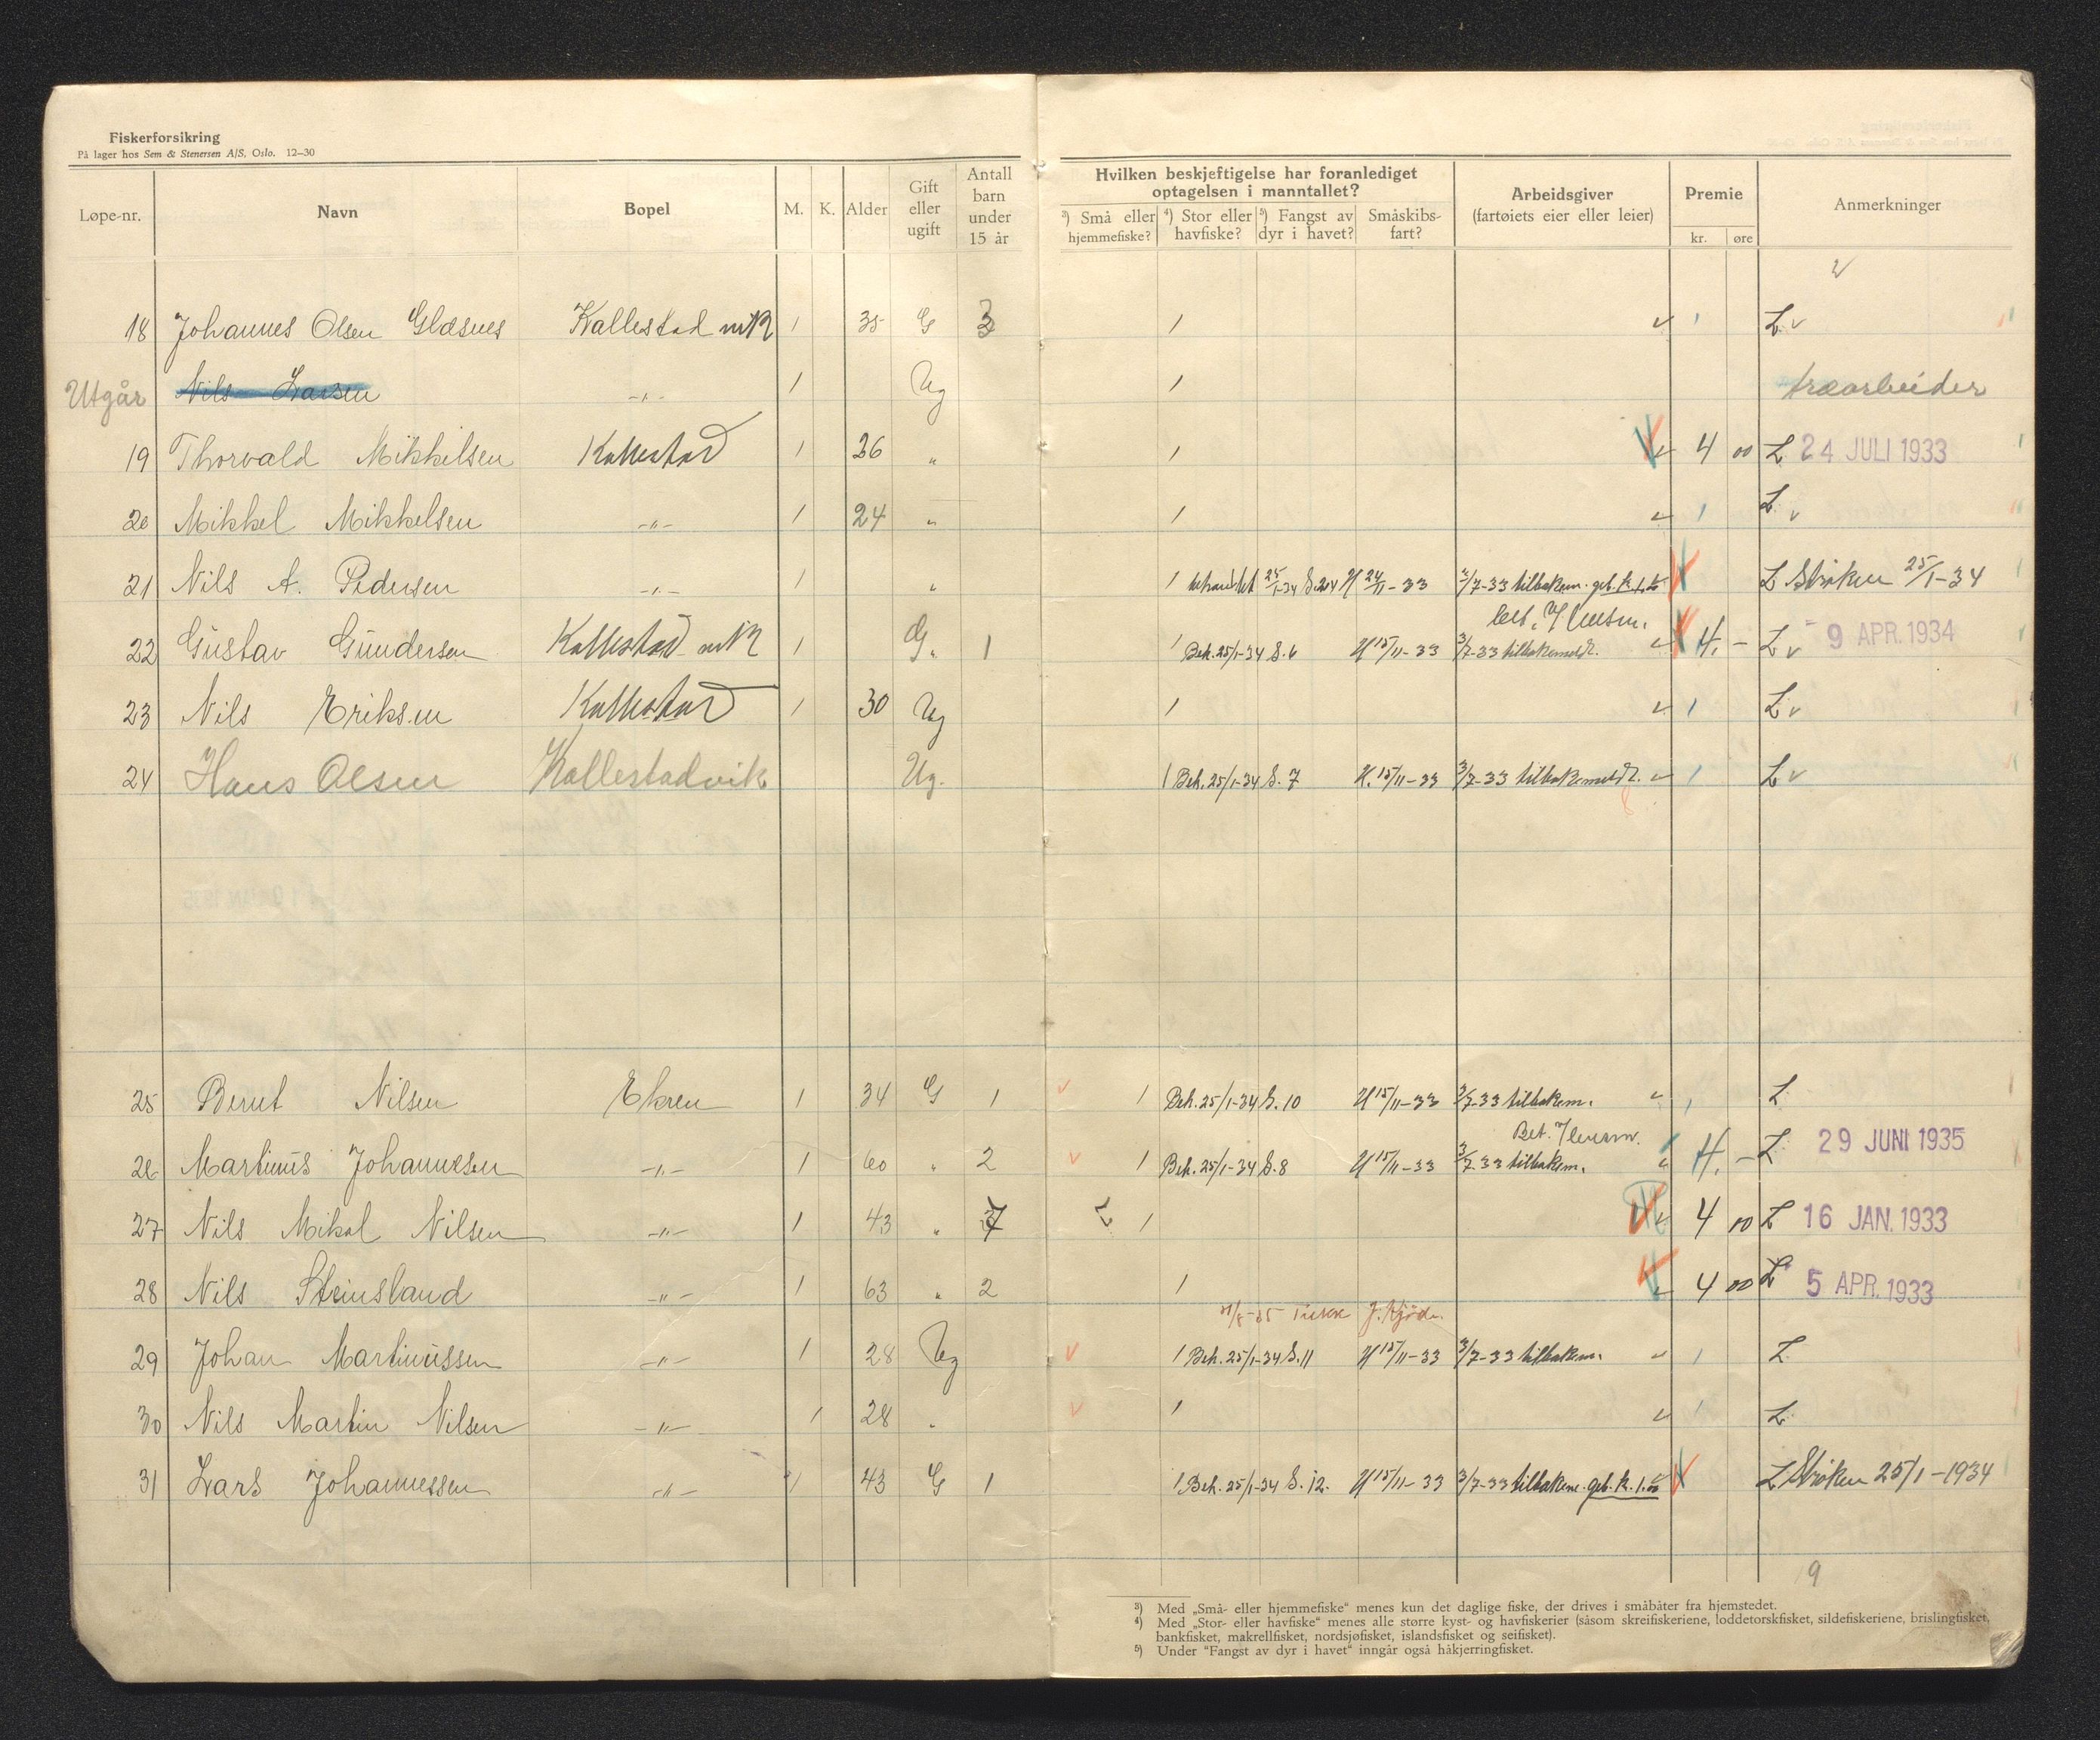 Fiskerforsikring
På lager hos Sem & Stenersen A/S, Oslo. 12–30
Løpe-nr. Navn Bopel M. K. Alder Gift eller ugift Antall barn under 15 år
Hvilken beskjeftigelse har foranlediget optagelsen i manntallet?
³) Små eller hjemmefiske? ⁴) Stor eller havfiske? ⁵) Fangst av dyr i havet? Småskibs-fart?
Arbeidsgiver (fartøiets eier eller leier) Premie kr. øre Anmerkninger
18 Johannes Olsen Glæsnes Kallestad 1 35 G 3 1 L v
Utgår Nils Larsen -"- 1 Ug 1 træarbeider
19 Thorvald Mikkelsen Kallestad 1 26 " 1 4 00 L 24 JULI 1933
20 Mikkel Mikkelsen -"- 1 24 " 1 L v
21 Nils A. Pedersen -"- 1 " 1 behandlet 25/1-34 24/11-33 2/7-33 tilbakem. geb. k. L Strøken 25/1-34
22 Gustav Gundersen Kallestad 1 G. 1 1 Beh. 25/1-34 S. 6 U 15/11-33 3/7-33 tilbakemeldt. 4. - L v 9 APR. 1934
23 Nils Eriksen Kallestad 1 30 Ug 1 L v
24 Hans Olsen Kallestadvik Ug. 1 Beh. 25/1-34 S. 7 U. 15/11-33 3/7-33 tilbakemeldt. L v
25 Bernt Nilsen Ekren 1 34 G 1 1 Beh. 25/1-34 S. 10 U 15/11-33 3/7-33 tilbakem. L
26 Martinus Johannesen -"- 1 60 " 2 1 Beh. 25/1-34 S. 8 U 15/11-33 3/7-33 tilbakem. Bet. 4. - L 29 JUNI 1935
27 Nils Mikal Nilsen -"- 1 43 " 7 1 4 00 L 16 JAN. 1933
28 Nils Steinsland -"- 1 63 " 2 1 4 00 L 5 APR. 1933
29 Johan Martinussen -"- 1 28 Ug 1 Beh. 25/1-34 S. 11 U 15/11-33 3/7-33 tilbakem. L
30 Nils Martin Nilsen -"- 1 28 " 1 L
31 Lars Johannessen -"- 1 43 G 1 1 Beh. 25/1-34 S. 12. U 15/11-33 3/7-33 tilbakem. geb. k. L Strøken 25/1-1934
9
³) Med „Små- eller hjemmefiske“ menes kun det daglige fiske, der drives i småbåter fra hjemstedet.
⁴) Med „Stor- eller havfiske“ menes alle større kyst- og havfiskerier (såsom skreifiskeriene, loddetorskfisket, sildefiskeriene, brislingfisket,
bankfisket, makrellfisket, nordsjøfisket, islandsfisket og seifisket).
⁵) Under “Fangst av dyr i havet“ inngår også håkjerringfisket.